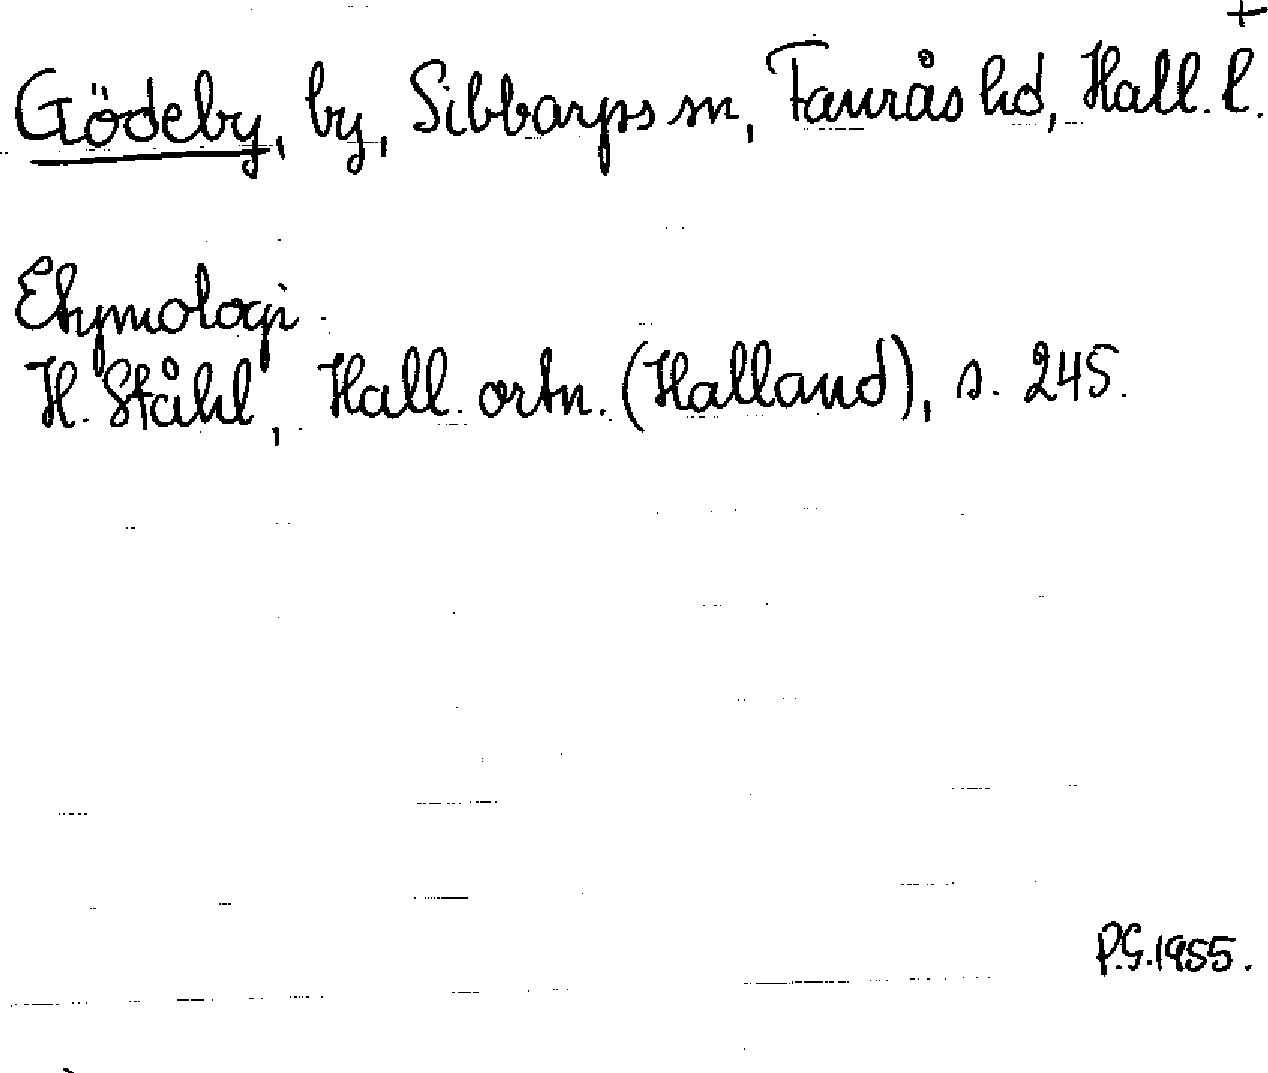 +
Gödeby, by, Sibbarps sn, Faurås hd, Hall. l.
Etymologi
H. Ståhl, Hall. ortn. (Halland), s. 245.
P.G. 1955.